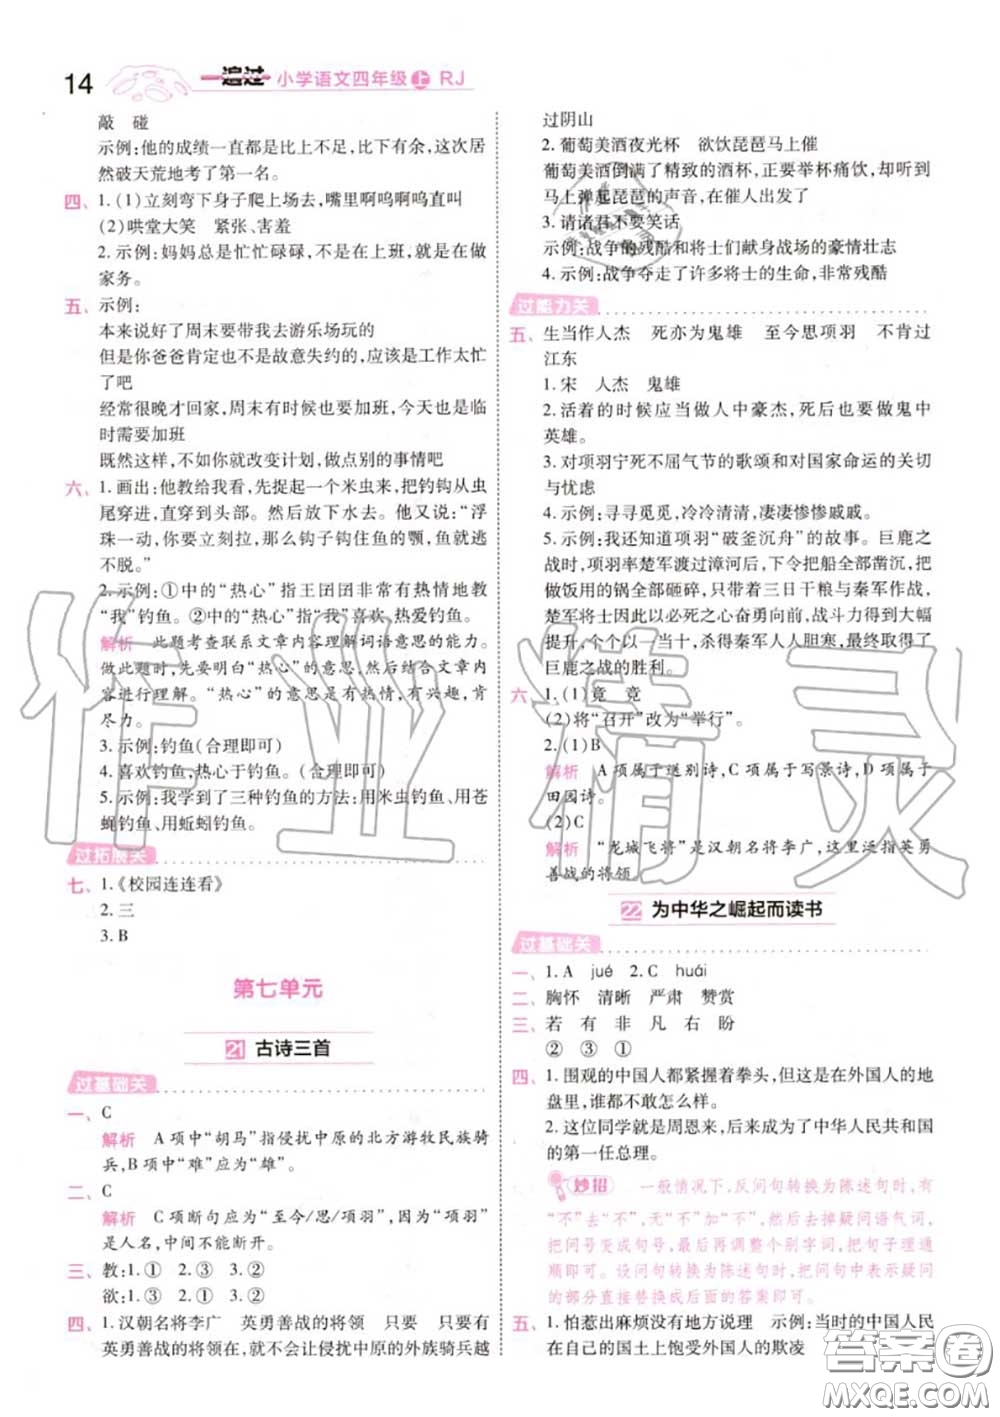 14
一遍过 小学语文四年级 上 RJ
敲 碰
示例:他的成绩一直都是比上不足,比下有余,这次居
然破天荒地考了第一名。
四、1.(1)立刻弯下身子爬上场去,嘴里啊呜啊呜直叫
(2)哄堂大笑 紧张、害羞
2.示例:妈妈总是忙忙碌碌,不是在上班,就是在做
家务。
五、示例:
本来说好了周末要带我去游乐场玩的
但是你爸爸肯定也不是故意失约的,应该是工作太忙
了吧
经常很晚才回家,周末有时候也要加班,今天也是临
时需要加班
既然这样,不如你就改变计划,做点别的事情吧
六、1.画出:他教给我看,先捉起一个米虫来,把钓钩从虫
尾穿进,直穿到头部。然后放下水去。他又说:“浮
珠一动,你要立刻拉,那么钩子钩住鱼的颚,鱼就逃
不脱。”
2.示例:①中的“热心”指王囝囝非常有热情地教
“我”钓鱼。②中的“热心”指“我”喜欢、热爱钓鱼。
解析 此题考查联系文章内容理解词语意思的能力。
做此题时,先要明白“热心”的意思,然后结合文章内
容进行理解。“热心”的意思是有热情,有兴趣,肯
尽力。
3.示例:钓鱼(合理即可)
4.喜欢钓鱼,热心于钓鱼。(合理即可)
5.示例:我学到了三种钓鱼的方法:用米虫钓鱼,用苍
蝇钓鱼,用蚯蚓钓鱼。
过拓展关
七、1.《校园连连看》
2.三
3.B
第七单元
21 古诗三首
过基础关
一、C
解析 A项中“胡马”指侵扰中原的北方游牧民族骑
兵,B项中“难”应为“雄”。
二、C
解析 C项断句应为“至今/思/项羽”,因为“项羽”
是人名,中间不能断开。
三、教:1.① 2.③ 3.②
欲:1.① 2.③ 3.②
四、1.汉朝名将李广 英勇善战的将领 只要 只要有
英勇善战的将领在,就不会让侵扰中原的外族骑兵越
过阴山
2.葡萄美酒夜光杯 欲饮琵琶马上催
葡萄美酒倒满了精致的酒杯,正要举杯痛饮,却听到
马上弹起琵琶的声音,在催人出发了
3.请诸君不要笑话
示例:战争的残酷和将士们献身战场的豪情壮志
4.示例:战争夺走了许多将士的生命,非常残酷
过能力关
五、生当作人杰 死亦为鬼雄 至今思项羽 不肯过
江东
1.宋 人杰 鬼雄
2.活着的时候应当做人中豪杰,死后也要做鬼中
英雄。
3.对项羽宁死不屈气节的歌颂和对国家命运的关切
与忧虑
4.示例:寻寻觅觅,冷冷清清,凄凄惨惨戚戚。
5.示例:我还知道项羽“破釜沉舟”的故事。巨鹿之
战时,项羽率楚军渡过漳河后,下令把船全部凿沉,把
做饭用的锅全部砸碎,只带着三日干粮与秦军作战,
楚军将士因此以必死之心奋勇向前,战斗力得到大幅
提升,个个以一当十,杀得秦军人人胆寒,最终取得了
巨鹿之战的胜利。
六、1.(1)竟 竞
(2)将“召开”改为“举行”。
2.(1)B
解析 A项属于送别诗,C项属于写景诗,D项属于
田园诗。
(2)C
解析 “龙城飞将”是汉朝名将李广,这里泛指英勇
善战的将领。
22 为中华之崛起而读书
过基础关
一、1.A jué 2.C huái
二、胸怀 清晰 严肃 赞赏
三、若 有 非 凡 右 盼
② ③ ①
四、1.围观的中国人都紧握着拳头,但是在外国人的地
盘里,谁都不敢怎么样。
2.这位同学就是周恩来,后来成为了中华人民共和国
的第一任总理。
妙招 一般情况下,反问句转换为陈述句时,有
“不”去“不”,无“不”加“不”,然后去掉疑问语气词,
把问号变成句号,最后再调整个别字词,把句子理通
顺即可。设问句转换为陈述句时,把问句中表示疑问
的部分直接替换成后面的答案即可。
五、1.怕惹出麻烦没有地方说理 示例:当时的中国人民
在自己的国土上饱受外国人的欺凌
作业精灵
答案圈
MXQE.COM